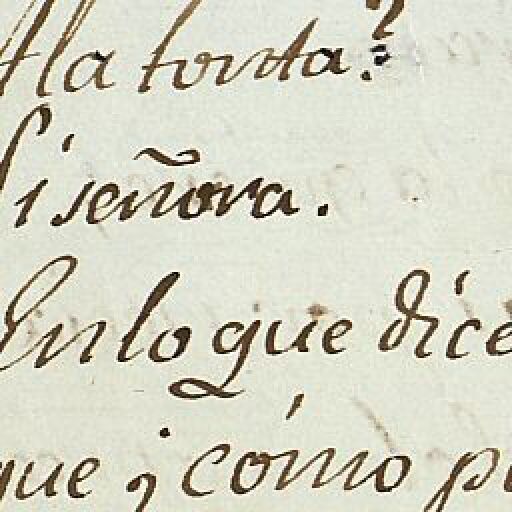 A la tonta?
Si señora.
En lo que dice
que ¿cómo p